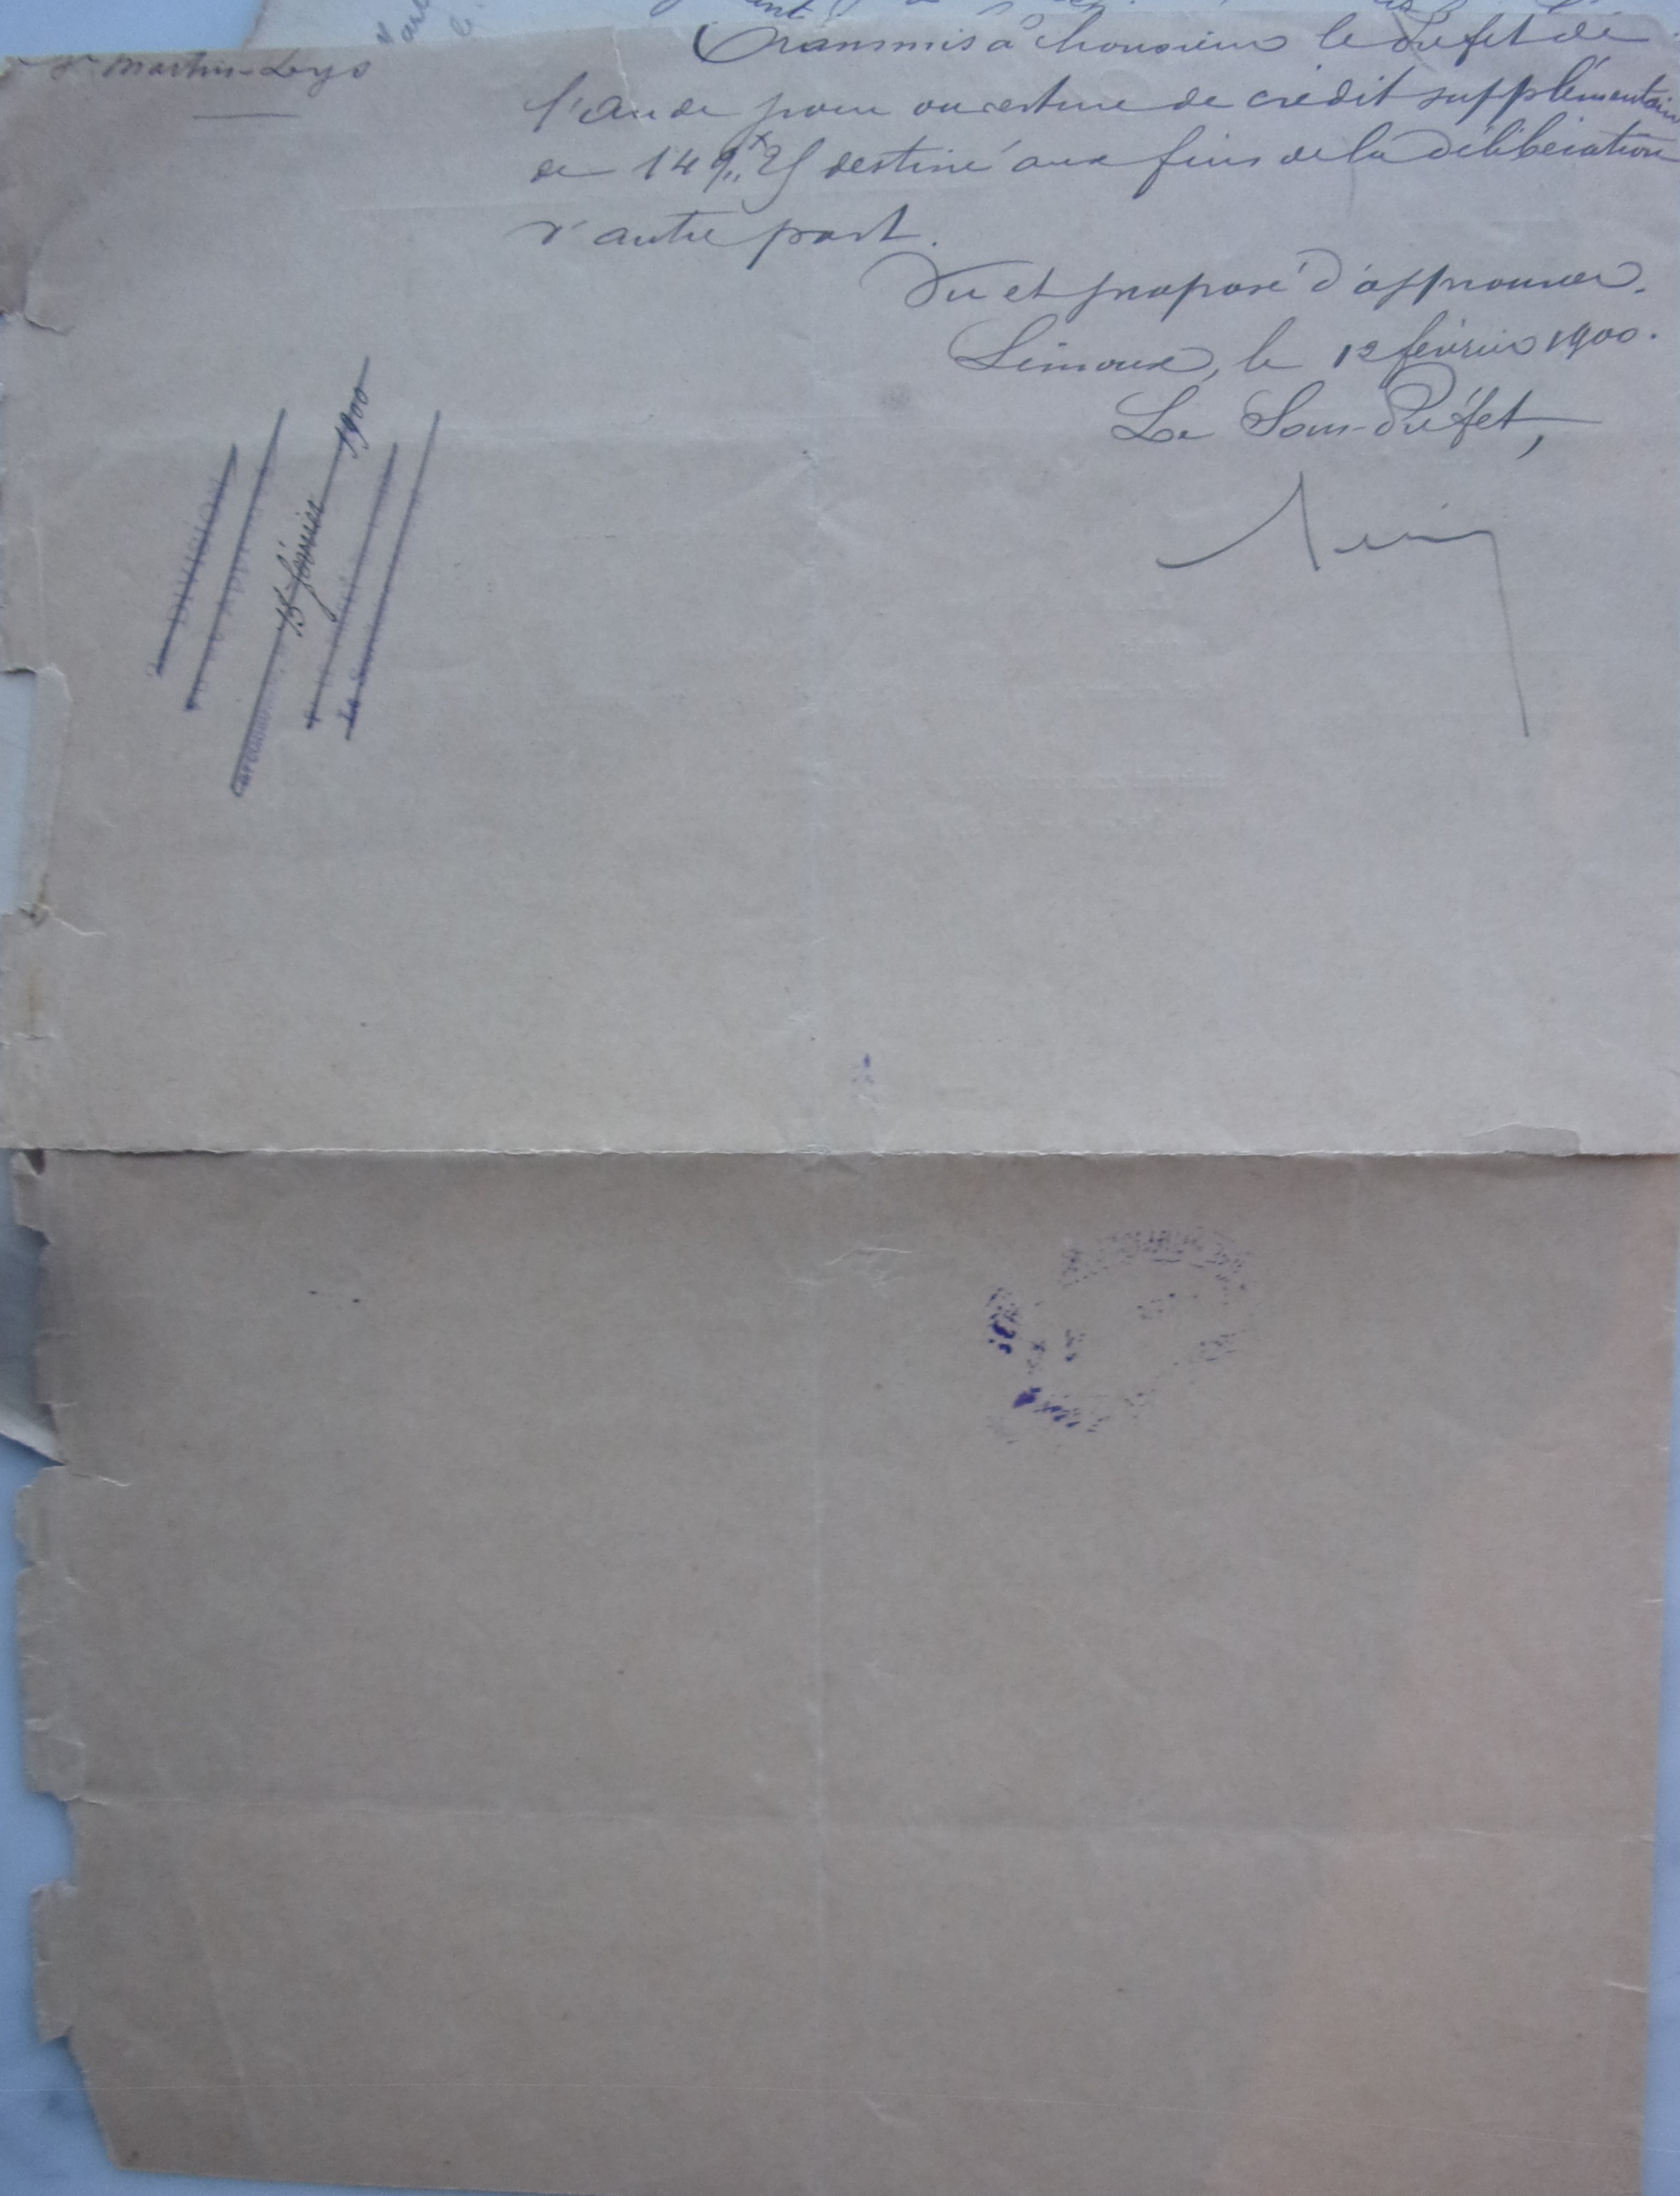 St Martin-Lys
Transmis à Monsieur le Préfet de
l'Aude pour ouverture de crédit supplémentaire
de 149f,25 destiné aux fins de la délibération
d'autre part.
Vu et proposé d'approuver.
Limoux, le 12 février 1900.
Le Sous-Préfet,
DIVISION
15 février 1900